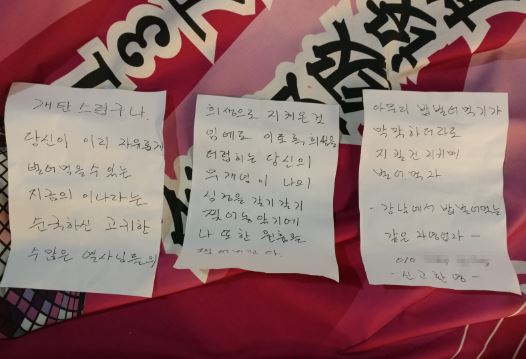 개탄 스럽구나.
당신이 이리 자유롭게
벌어먹을수 있는
지금의 이나라는
순국하신 고귀한
수많은 열사님들의
희생으로 지켜온것
임에도 이토록, 희생을
더럽히는 당신의
무개념이 나의
심장을 갈기갈기
찢어놓았기에
나 또한 현수막을
찢어버린다.
아무리 밥벌어먹기가
막막하더라도
지킬건 지키며
벌어먹자
- 강남에서 밥벌어먹는
같은 자영업자 -
010
- 신고환영 -